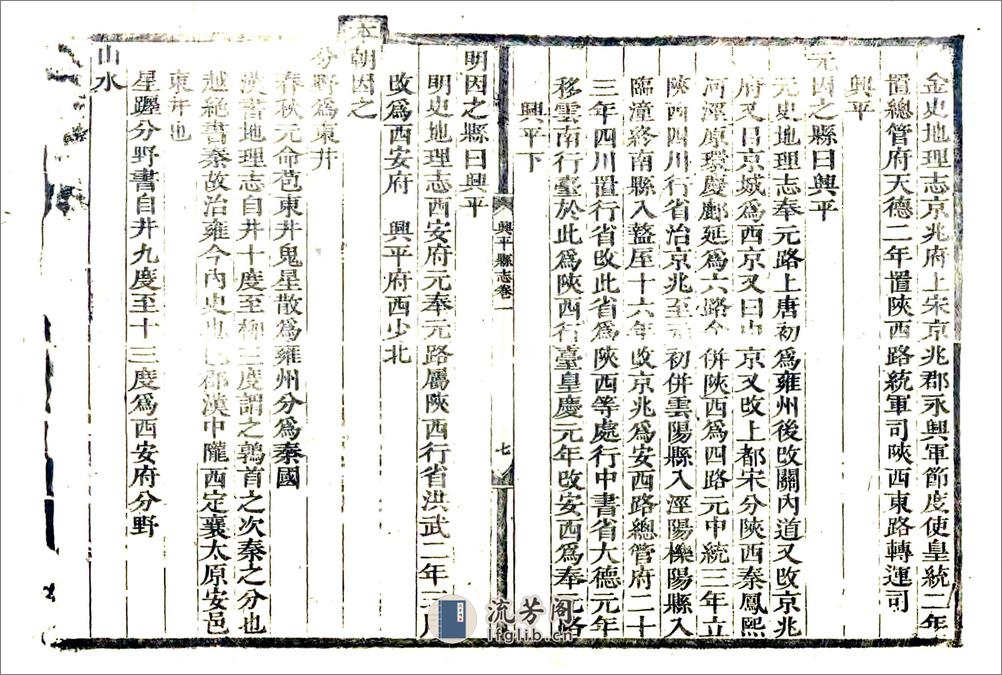 金史地理志京兆府上宋京兆郡永興軍節度使皇統二年
置總管府天德二年置陝西路統軍司陝西東路轉運司
興平
元因之縣曰興平
元史地理志奉元路上唐初爲雍州後改關內道又改京兆
府又曰京城爲西京又曰中京又改上都宋分陝西秦鳳熙
河涇原環慶鄜延爲六路金併陝西爲四路元中統三年立
陝西四川行省治京兆至元初併雲陽縣入涇陽櫟陽縣入
臨潼終南縣入盩厔十六年改京兆爲安西路總管府二十
三年四川置行省改此省爲陝西等處行中書省大德元年
移雲南行臺於此爲陝西行臺皇慶元年改安西爲奉元路
興平下
興平縣志卷一
七
明因之縣曰興平
明史地理志西安府元奉元路屬陝西行省洪武二年三月
改爲西安府 興平府西少北
本朝因之
分野爲東井
春秋元命苞東井鬼星散爲雍州分爲秦國
漢書地理志自井十度至柳三度謂之鶉首之次秦之分也
越絕書秦故治雍今內史也巴郡漢中隴西定襄太原安邑
東井也
星躔分野書自井九度至十三度爲西安府分野
山水
流芳阁
lfglib.cn